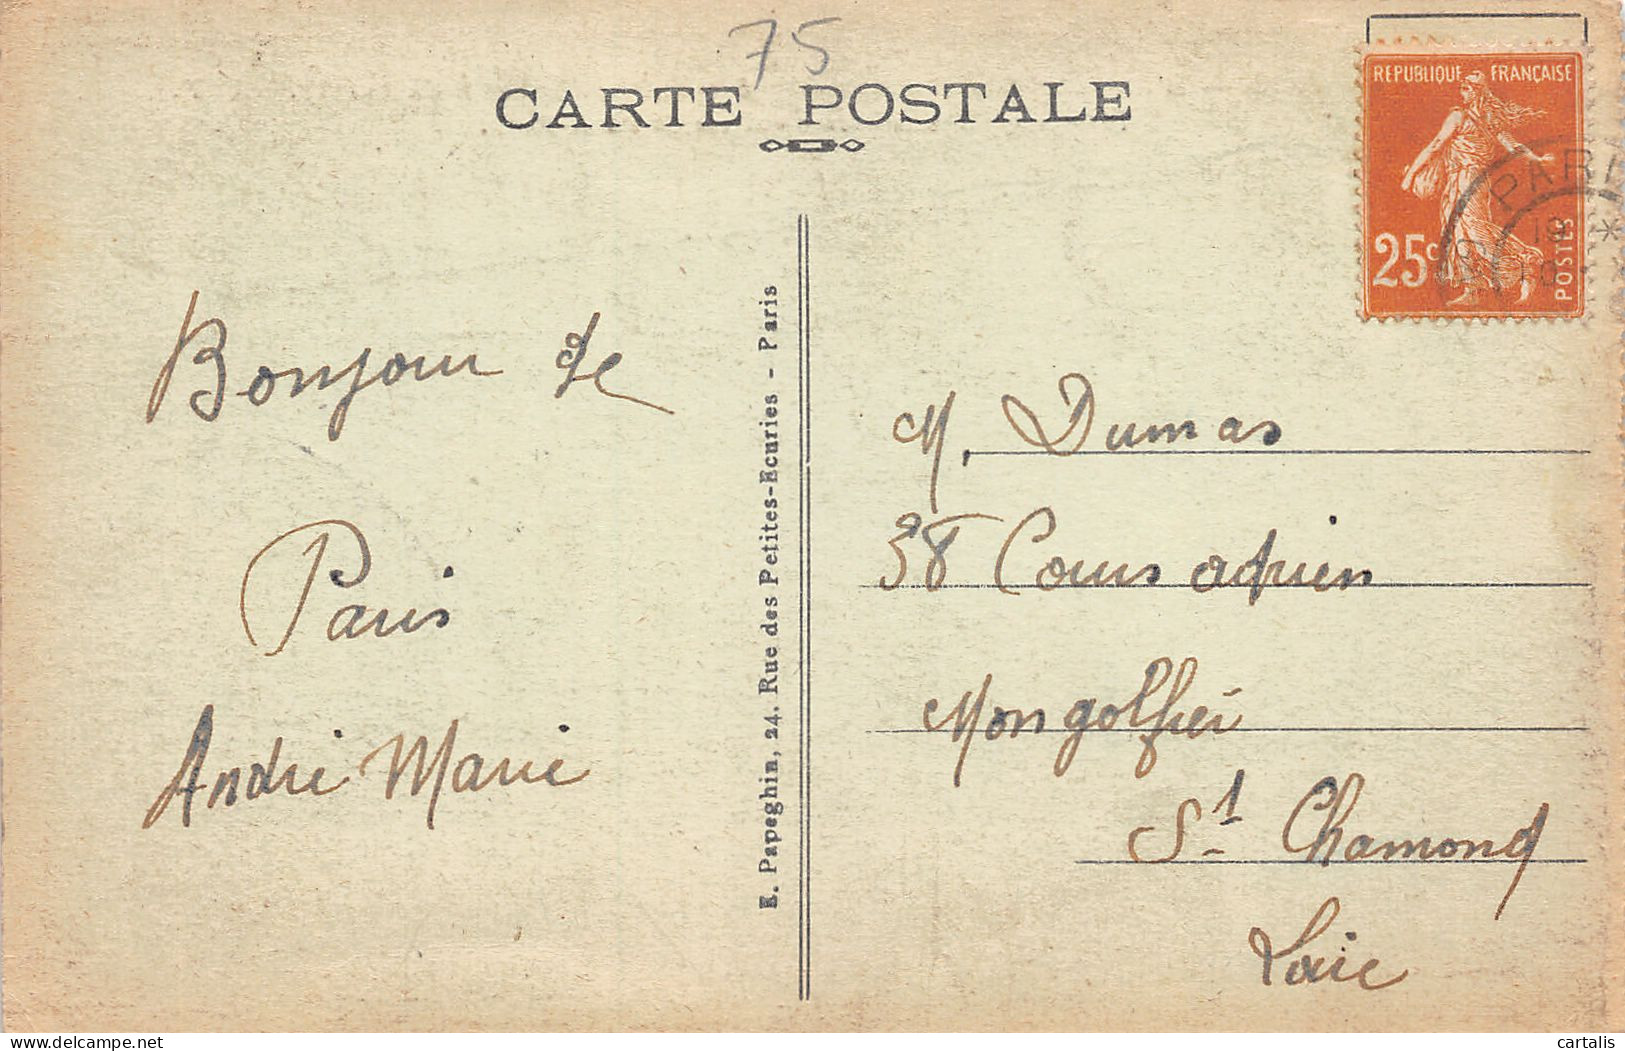 75
CARTE POSTALE
REPUBLIQUE FRANÇAISE
25c
POSTES
PARI
Bonjour de
Paris
André Marie
E. Papeghin, 24. Rue des Petites-Ecuries - Paris
M. Dumas
38 Cours adrien
Mongolfier
St Chamond
Loire
cartalis